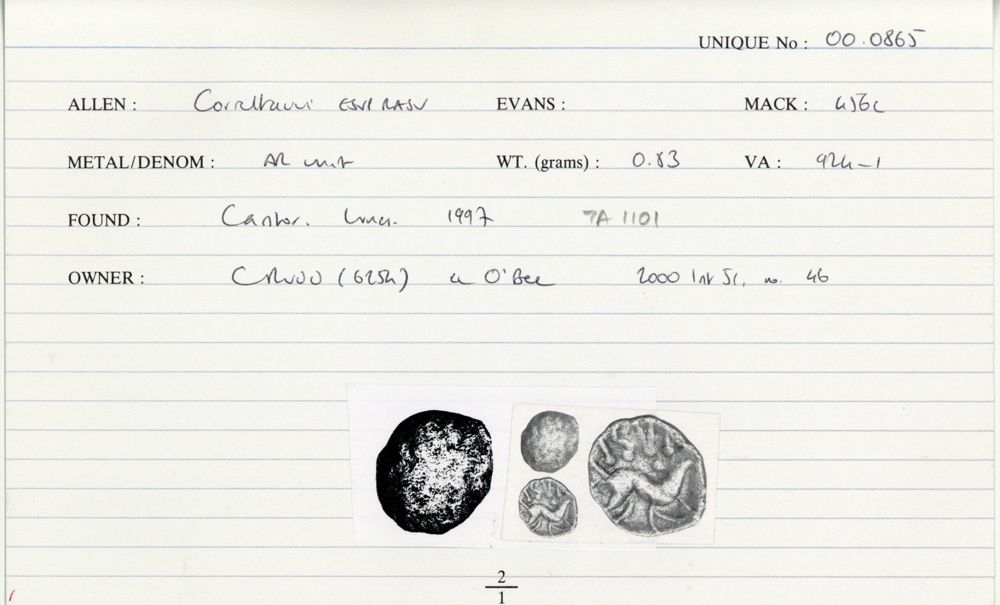 UNIQUE No : 00.0865
ALLEN : Corieltauvi ESVP RASV EVANS : MACK : 456c
METAL/DENOM : AR unit WT. (grams) : 0.83 VA : 924-1
FOUND : 1997 TA 1101
OWNER : ex O'Bee 2000 no. 46
2
1